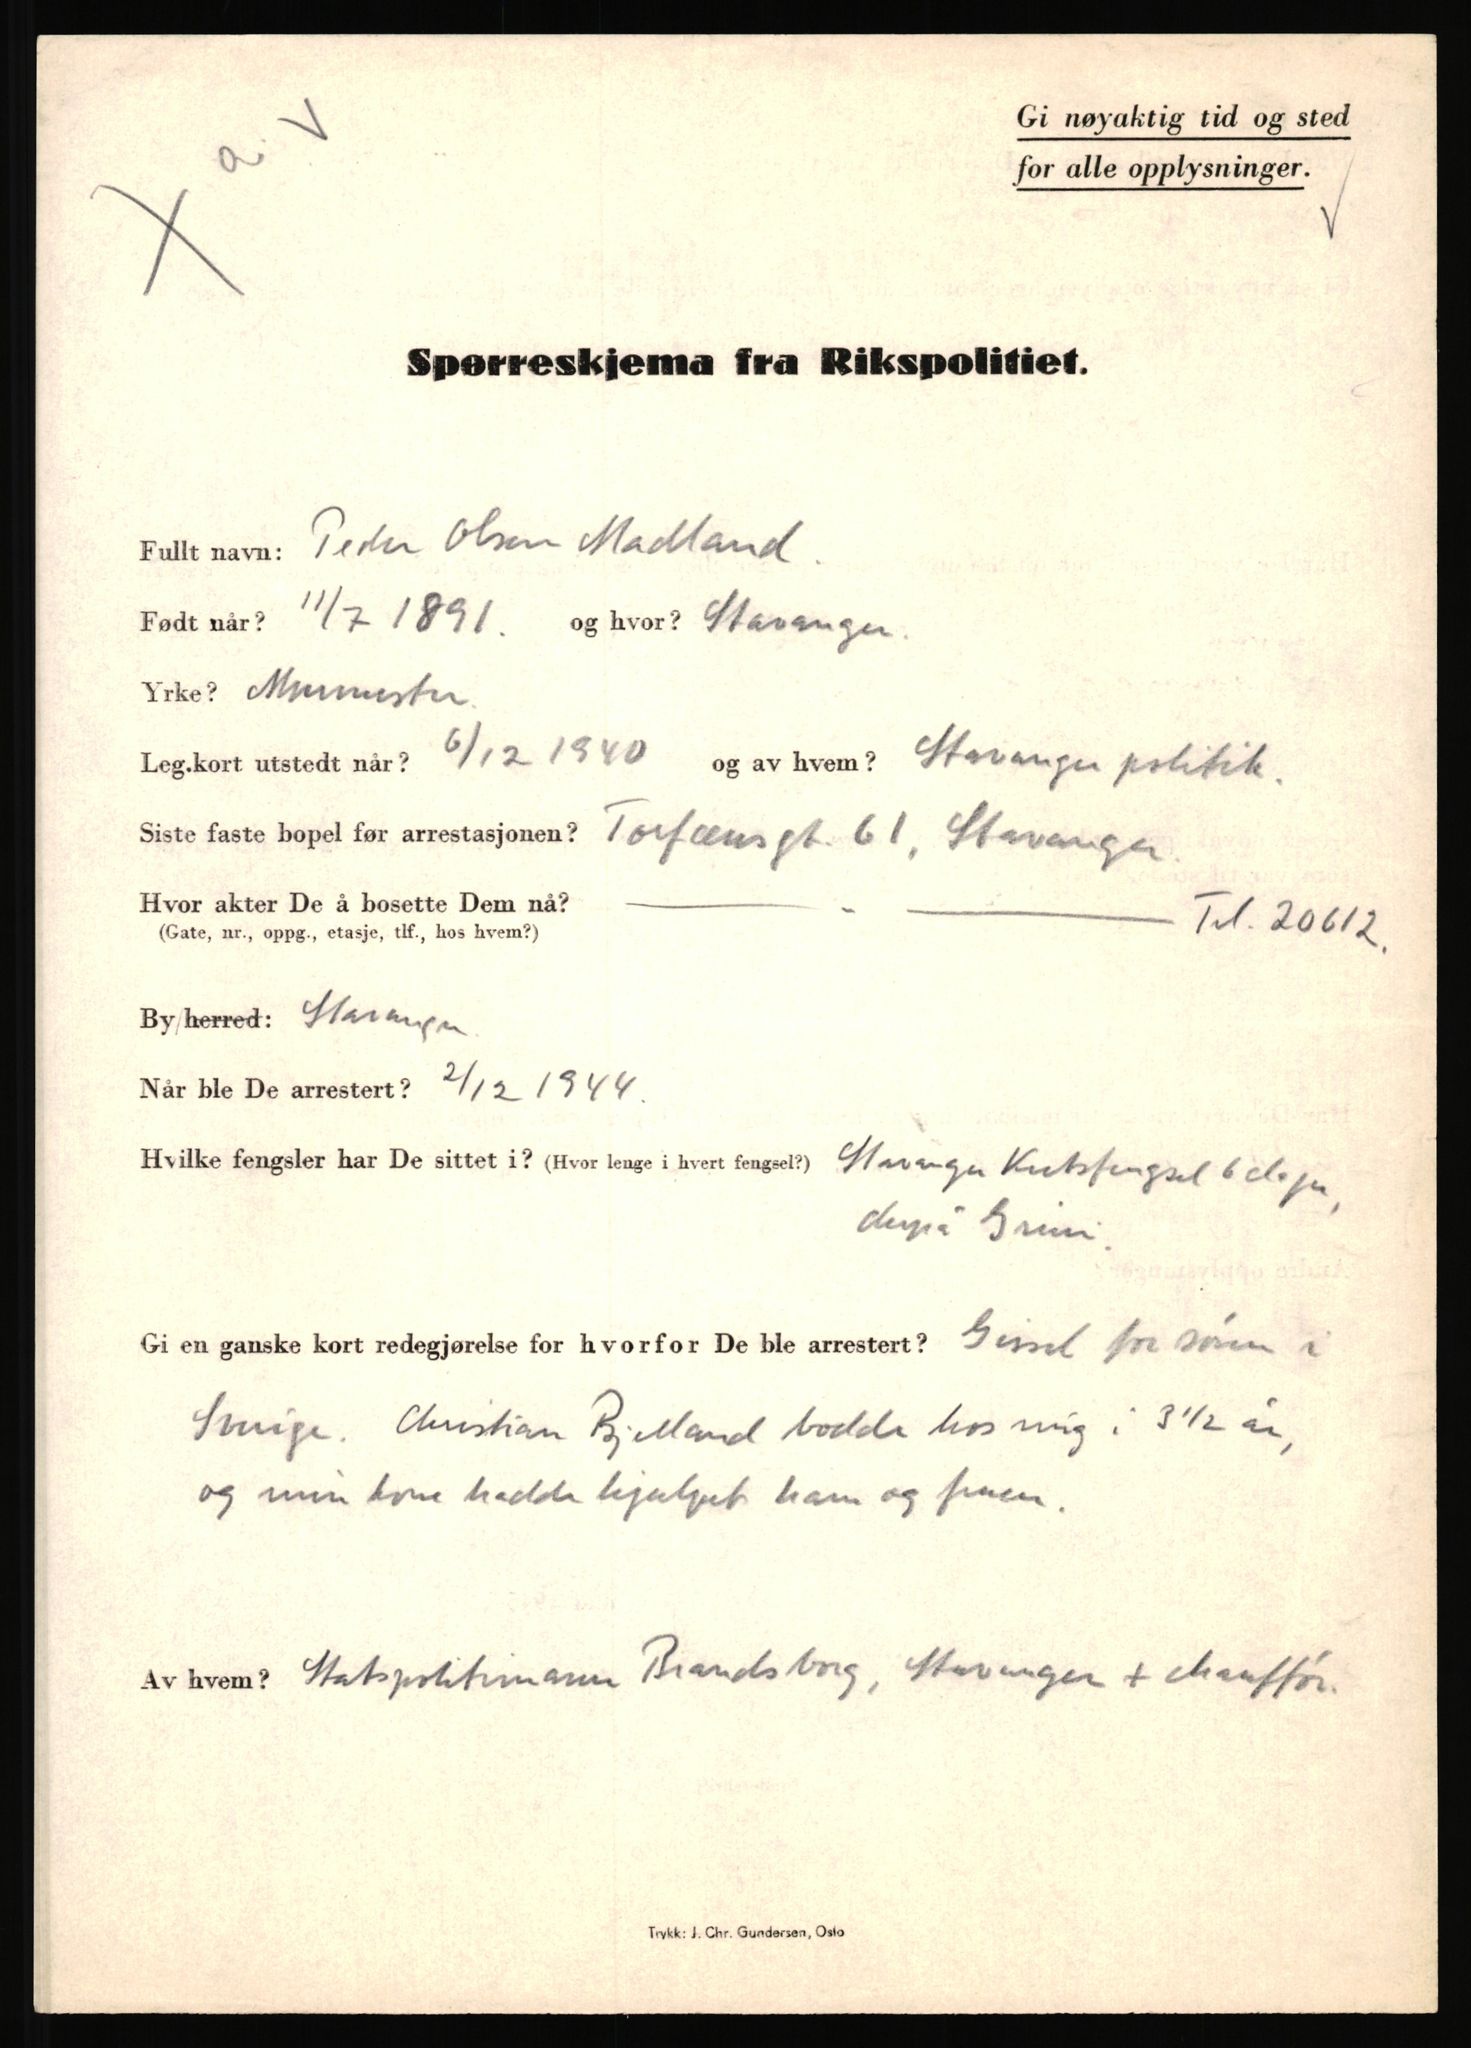 a. V
Gi nøyaktig tid og sted
for alle opplysninger.
Spørreskjema fra Rikspolitiet.
Fullt navn: Peder Olsen Madland.
Født når? 11/7 1891. og hvor? Stavanger.
Yrke? Murmester.
Leg.kort utstedt når? 6/12 1940 og av hvem? Stavanger politik.
Siste faste bopel før arrestasjonen? Torfæusgt. 61, Stavanger.
Hvor akter De å bosette Dem nå? — " — Tel. 20612.
(Gate, nr., oppg., etasje, tlf., hos hvem?)
By/herred: Stavanger
Når ble De arrestert? 2/12 1944.
Hvilke fengsler har De sittet i? (Hvor lenge i hvert fengsel?) Stavanger Kretsfengsel 6 dager,
derpå Grini.
Gi en ganske kort redegjørelse for hvorfor De ble arrestert? Gissel for sönn i
Sverige. Christian Bjelland bodde hos mig i 3 1/2 år,
og min kone hadde hjulpet ham og fruen.
Av hvem? Statspolitimann Brandsborg, Stavanger + chaufför.
Trykk: J. Chr. Gundersen, Oslo